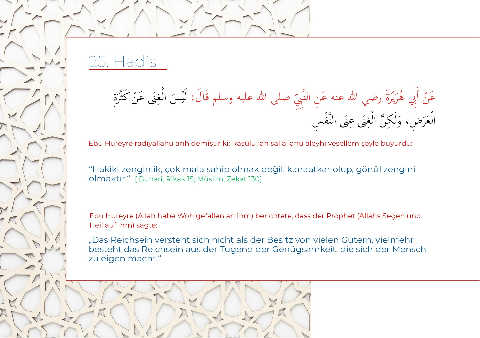 Hadis
عَنْ أَبِي هُرَيْرَةَ رضي الله عنه عَنِ النَّبِيِّ صلى الله عليه وسلم قَالَ: لَيْسَ الْغِنَى عَنْ كَثْرَةِ
الْعَرَضِ، وَلَكِنَّ الْغِنَى غِنَى النَّفْسِ
Ebu Hureyre radiyallahu anh demiştir ki: Rasulullah sallallahu aleyhi vesellem şöyle buyurdu:
"Hakiki zenginlik, çok mala sahip olmak değil, kanaatkar olup, gönül zengini
olmaktır."
Ebu Hureyre (Allah habe Wohlgefallen an ihm) berichtete, dass der Prophet (Allahs Segen und
Heil auf ihm) sagte:
„Das Reichsein versteht sich nicht als der Besitz von vielen Gütern, vielmehr
besteht das Reichsein aus der Tugend der Genügsamkeit, die sich der Mensch
zu eigen macht."